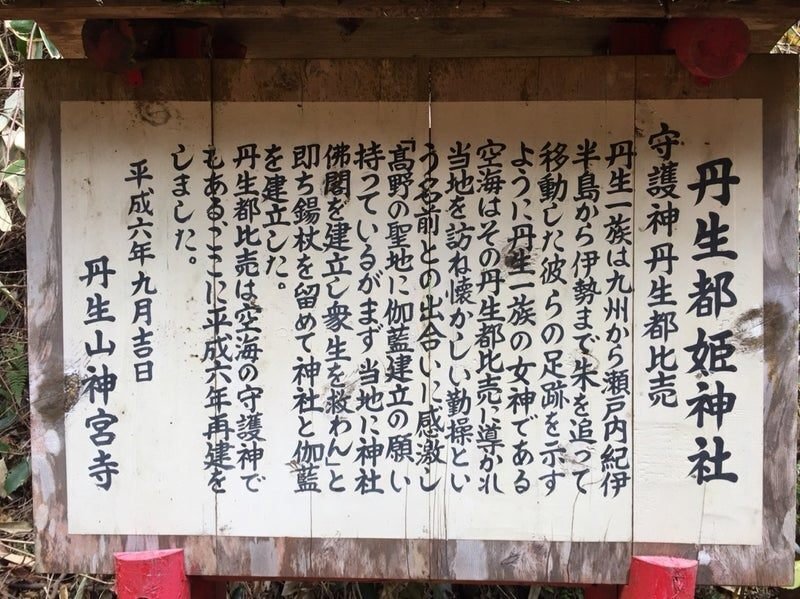 丹生都姫神社
守護神 丹生都比売
丹生一族は九州から瀬戸内紀伊
半島から伊勢まで朱を追って
移動した彼らの足跡を示す
ように丹生一族の女神である
空海はその丹生都比売に導かれ
当地を訪ね懐かしい勤操とい
う名前との出合いに感激し
「髙野の聖地に伽藍建立の願い
持っているがまず当地に神社
佛閣を建立し衆生を救わん」と
即ち錫杖を留めて神社と伽藍
を建立した。
丹生都比売は空海の守護神で
もある、ここに平成六年再建を
しました。
平成六年九月吉日
丹生山神宮寺